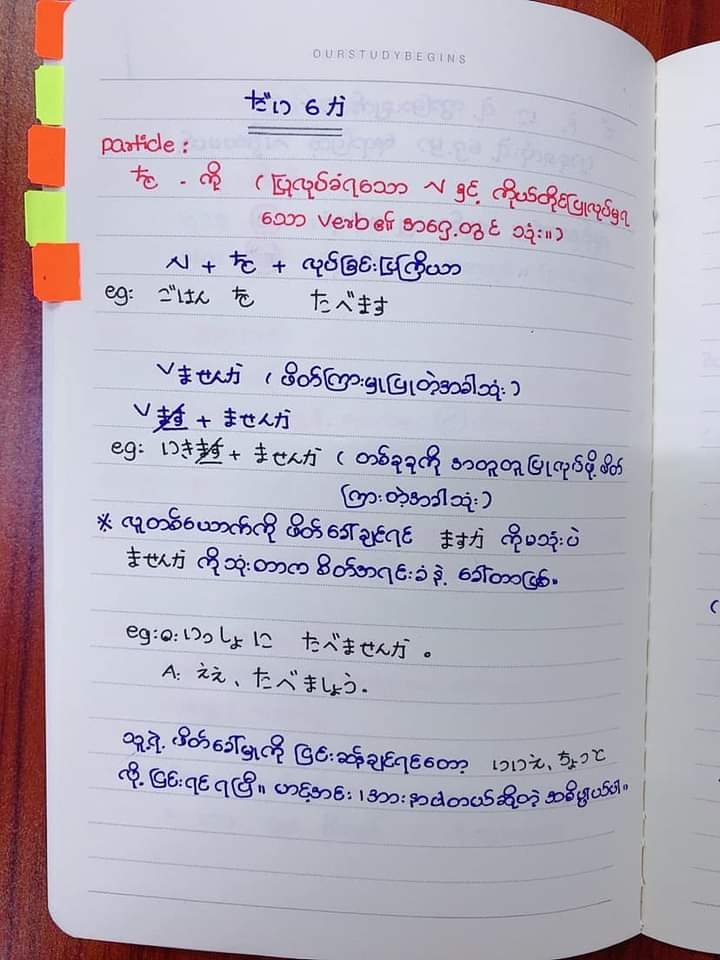 OURSTUDYBEGINS
だい 6 か
particle :
を - ကို ( ပြုလုပ်ခံရသော N နှင့် ကိုယ်တိုင်ပြုလုပ်မှုရ
သော verb ၏ အရှေ့တွင် သုံး။ )
N + を + လုပ်ခြင်းပြကြိယာ
eg: ごはん を たべます
Vませんか ( ဖိတ်ကြားမှုပြုတဲ့အခါသုံး )
Vます + ませんか
eg: いきます + ませんか ( တစ်ခုခုကို အတူတူပြုလုပ်ဖို့ ဖိတ်
ကြားတဲ့အခါသုံး )
※ လူတစ်ယောက်ကို ဖိတ်ခေါ်ချင်ရင် ますか ကိုမသုံးပဲ
ませんか ကိုသုံးတာက စိတ်အရင်းခံနဲ့ ခေါ်တာဖြစ်။
eg: Q: いっしょに たべませんか 。
A: ええ、たべましょう.
သူ့ရဲ့ ဖိတ်ခေါ်မှုကို ငြင်းဆန်ချင်ရင်တော့ いいえ、ちょっと
လို့ ငြင်းရင် ရပြီ။ ဟင့်အင်း အားနာပါတယ်ဆိုတဲ့ အဓိပ္ပါယ်ပါ။